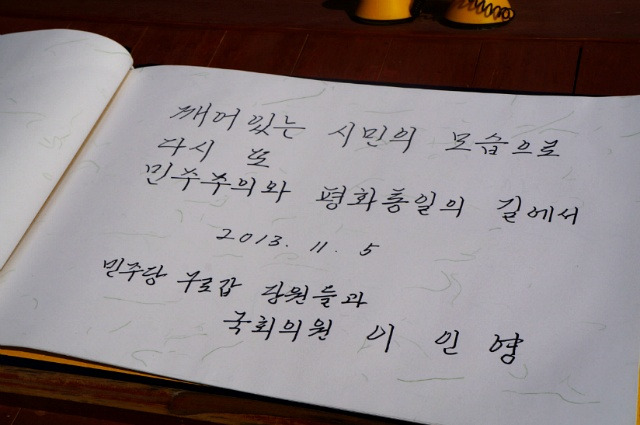 깨어있는 시민의 모습으로
다시 또
민주주의와 평화통일의 길에서
2013. 11. 5
민주당 구로갑 당원들과
국회의원 이 인 영